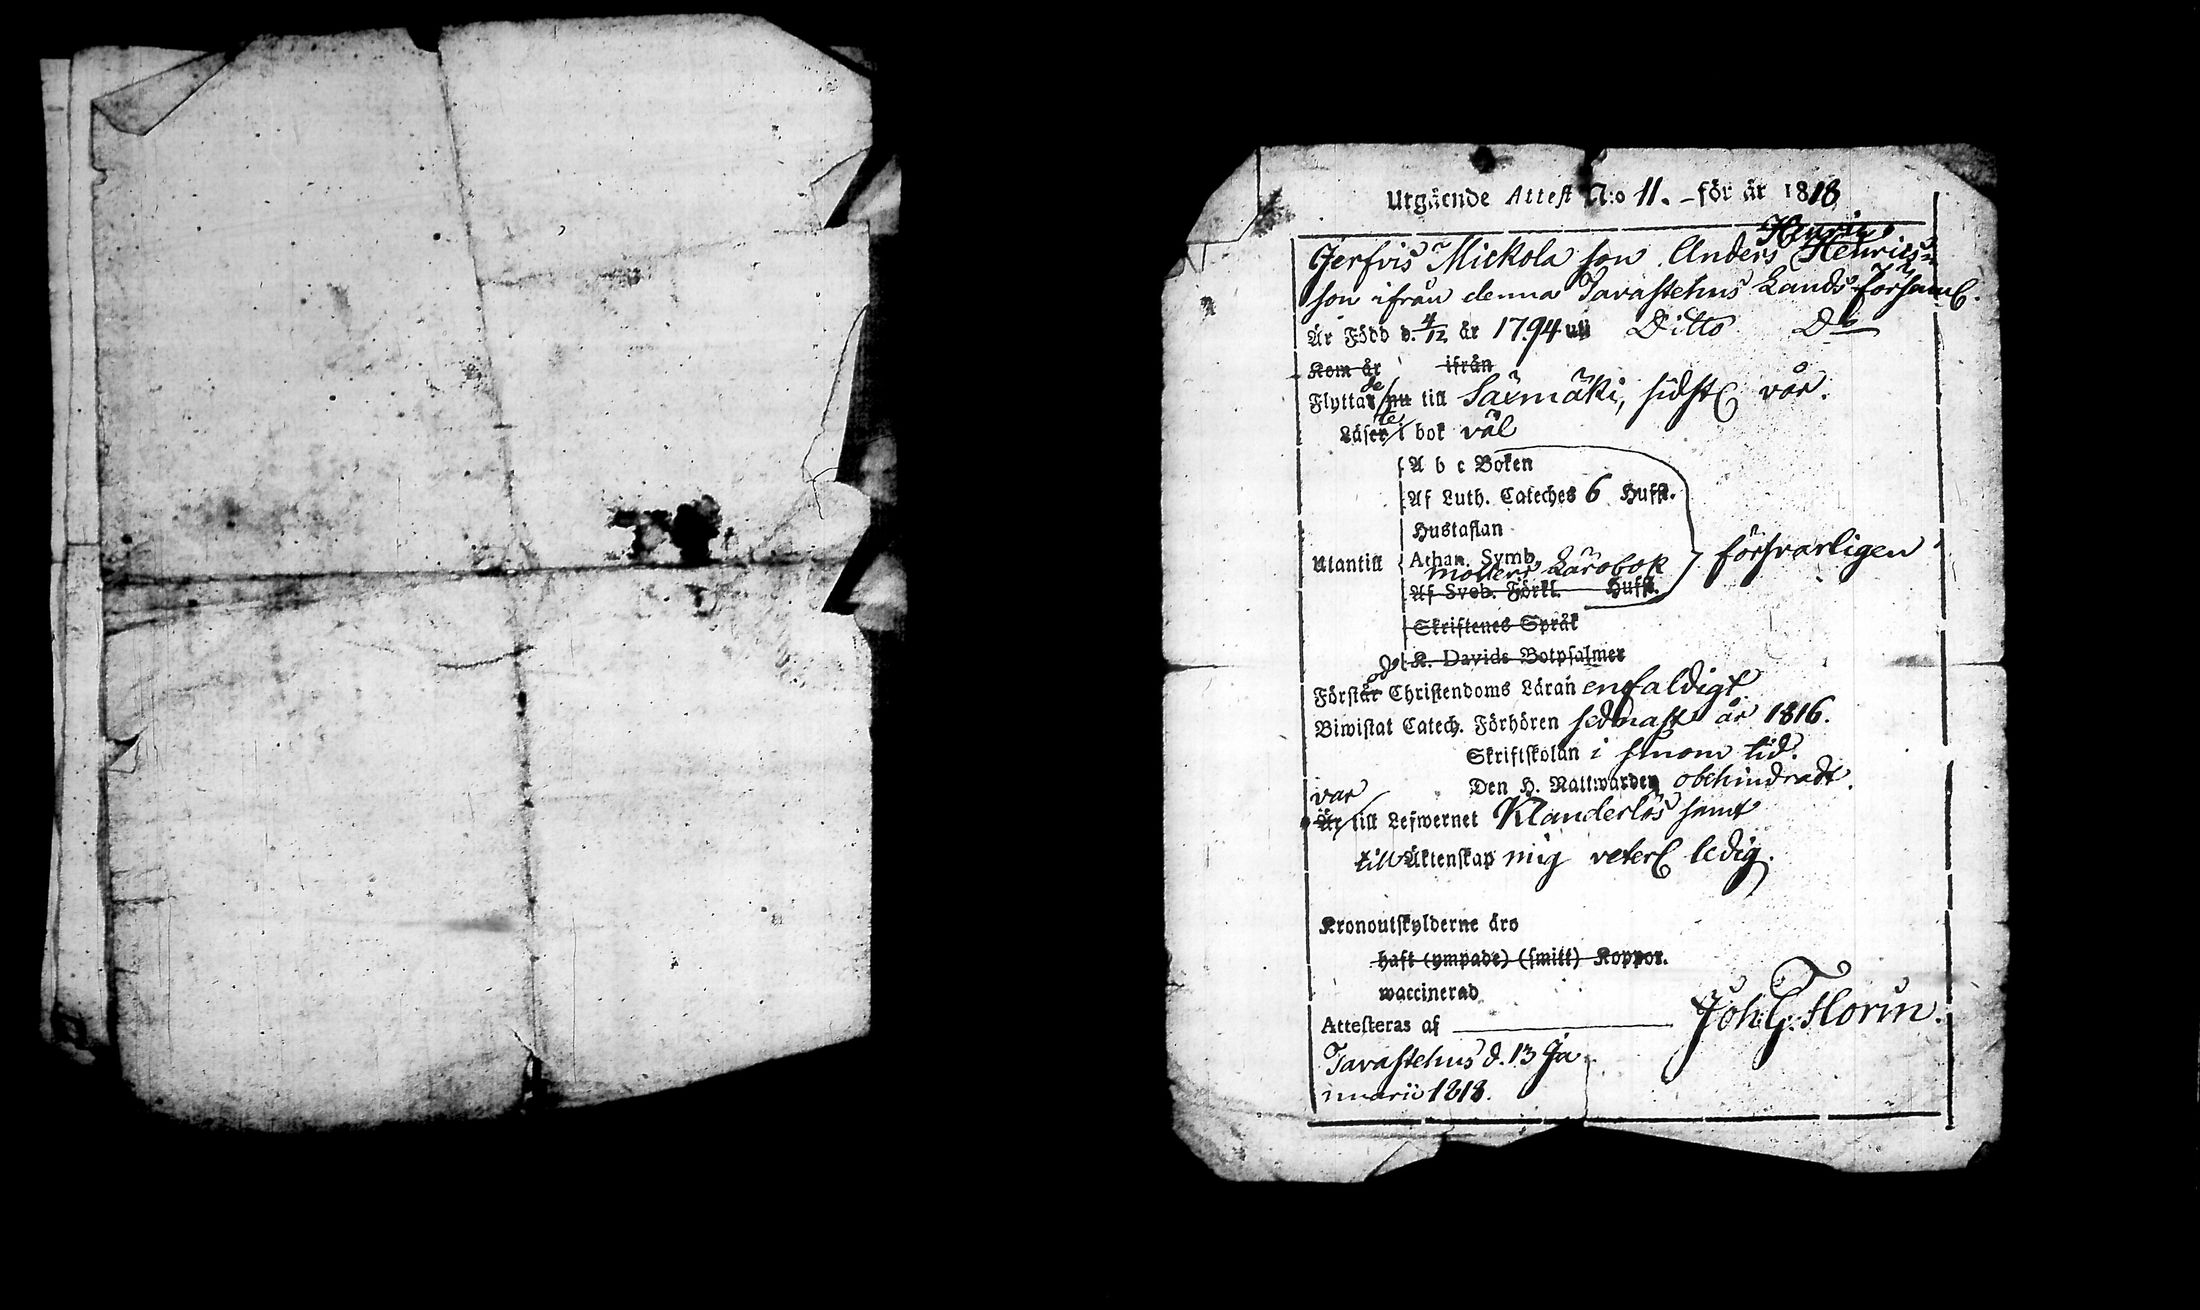 Utgående Attest N:o 11. för år 1818
Henrics
Jerfvis Mickola son Anders Henrics-
son ifrån denna Tavastehus Lands Församl.
Är Född d. 4/12 år 1794 uti Ditto Do
Kom år ifrån
de
Flyttar nu till Säxmäki, sidstl vår.
te
Läser i bok väl
A b c Boken
Af Luth. Catechès 6 Hufst.
Hustaflan
Utantill Athan. Symb. försvarligen
Möllers Lärobok
Af Sveb. Förkl. Hufst.
Skriftenes Språk
K. Davids Botpsalmer
od
Förstår Christendoms Läran enfaldigt
Biwistat Catech. Förhören sednast år 1816.
Skriftskolan i sinom tid.
Den H. Nattwarden obehindradt.
var
Är till Lefwernet Klanderlös samt
till Äktenskap mig veterl ledig.
Kronoutskylderne äro
haft (ympade) (smitt) Koppor.
waccinerad
Attesteras af Joh. G. Florin.
Tavastehus d. 13 Ja
nuarii 1818.